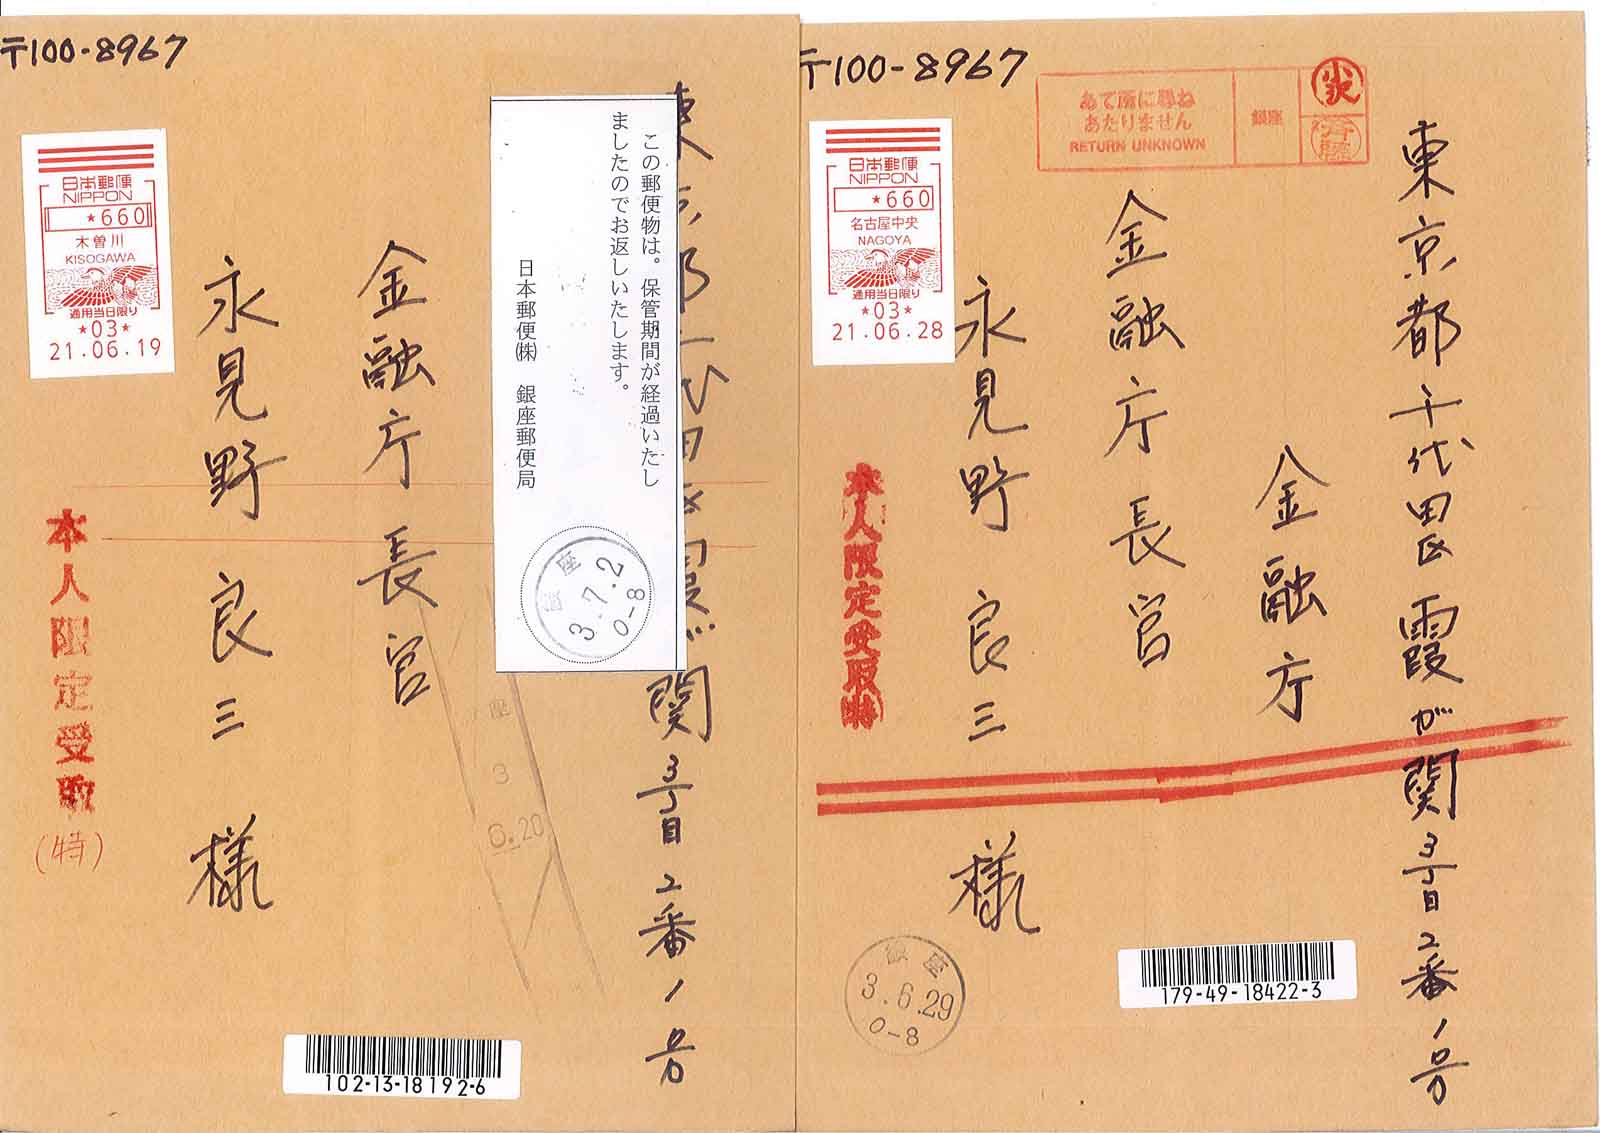 〒100-8967
日本郵便
NIPPON
*660
木曽川
KISOGAWA
通用当日限り
*03*
21.06.19
この郵便物は。保管期間が経過いたし
ましたのでお返しいたします。
日本郵便㈱ 銀座郵便局
座
3.7.2
0-8
関3丁目2番1号
金融庁長官
永見野良三 様
本人限定受取
(特)
座
3
6.20
102-13-18192-6
〒100-8967
あて所に尋ね
あたりません
RETURN UNKNOWN
銀座
日本郵便
NIPPON
*660
名古屋中央
NAGOYA
通用当日限り
*03*
21.06.28
東京都千代田区霞が関3丁目2番1号
金融庁
金融庁長官
永見野良三 様
本人限定受取(特)
銀座
3.6.29
0-8
179-49-18422-3